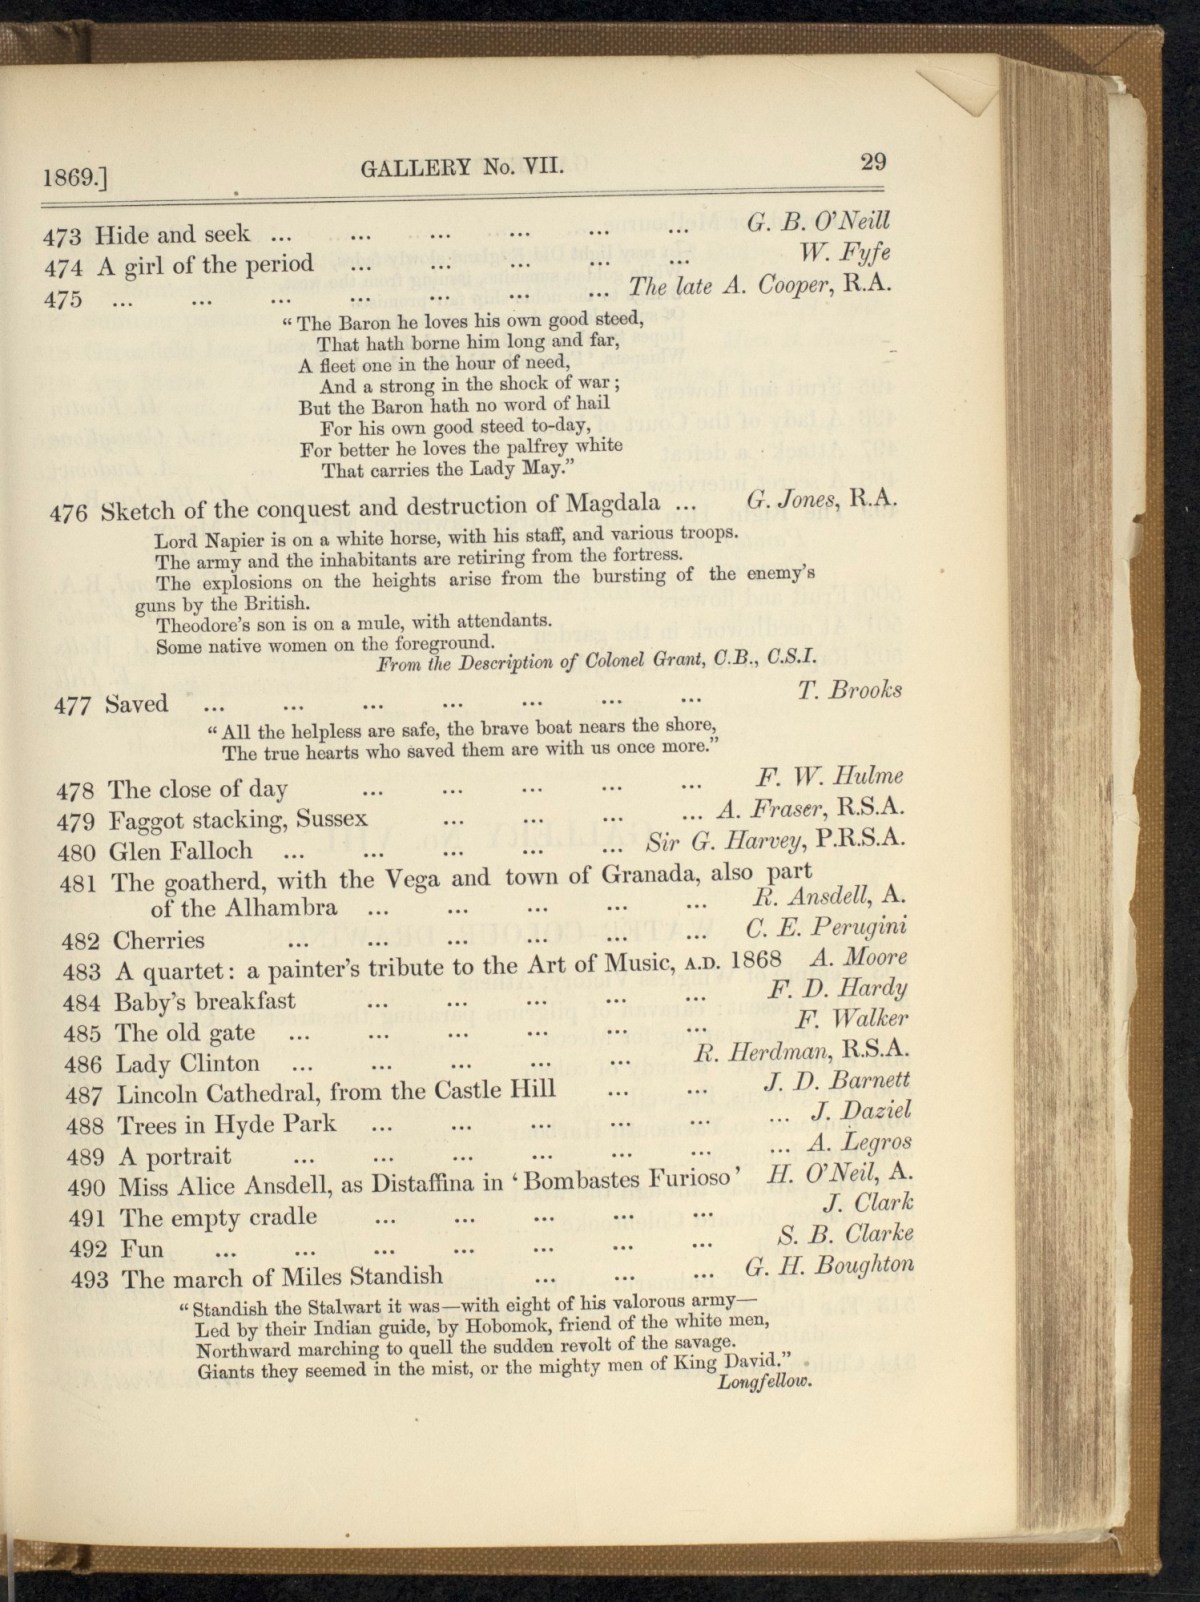 1869.] GALLERY No. VII. 29
473 Hide and seek ... ... ... ... ... ... G. B. O'Neill
474 A girl of the period ... ... ... ... ... W. Fyfe
475 ... ... ... ... ... ... ... The late A. Cooper, R.A.
“ The Baron he loves his own good steed,
That hath borne him long and far,
A fleet one in the hour of need,
And a strong in the shock of war ;
But the Baron hath no word of hail
For his own good steed to-day,
For better he loves the palfrey white
That carries the Lady May.”
476 Sketch of the conquest and destruction of Magdala ... G. Jones, R.A.
Lord Napier is on a white horse, with his staff, and various troops.
The army and the inhabitants are retiring from the fortress.
The explosions on the heights arise from the bursting of the enemy's
guns by the British.
Theodore's son is on a mule, with attendants.
Some native women on the foreground.
From the Description of Colonel Grant, C.B., C.S.I.
477 Saved ... ... ... ... ... ... ... T. Brooks
“ All the helpless are safe, the brave boat nears the shore,
The true hearts who saved them are with us once more.”
478 The close of day ... ... ... ... ... F. W. Hulme
479 Faggot stacking, Sussex ... ... ... ... A. Fraser, R.S.A.
480 Glen Falloch ... ... ... ... ... Sir G. Harvey, P.R.S.A.
481 The goatherd, with the Vega and town of Granada, also part
of the Alhambra ... ... ... ... ... R. Ansdell, A.
482 Cherries ... ... ... ... ... ... C. E. Perugini
483 A quartet: a painter's tribute to the Art of Music, A.D. 1868 A. Moore
484 Baby's breakfast ... ... ... ... ... F. D. Hardy
485 The old gate ... ... ... ... ... ... F. Walker
486 Lady Clinton ... ... ... ... ... R. Herdman, R.S.A.
487 Lincoln Cathedral, from the Castle Hill ... ... J. D. Barnett
488 Trees in Hyde Park ... ... ... ... ... ... J. Daziel
489 A portrait ... ... ... ... ... ... ... A. Legros
490 Miss Alice Ansdell, as Distaffina in ‘ Bombastes Furioso ’ H. O'Neil, A.
491 The empty cradle ... ... ... ... ... J. Clark
492 Fun ... ... ... ... ... ... ... S. B. Clarke
493 The march of Miles Standish ... ... ... G. H. Boughton
“ Standish the Stalwart it was—with eight of his valorous army—
Led by their Indian guide, by Hobomok, friend of the white men,
Northward marching to quell the sudden revolt of the savage.
Giants they seemed in the mist, or the mighty men of King David.”
Longfellow.